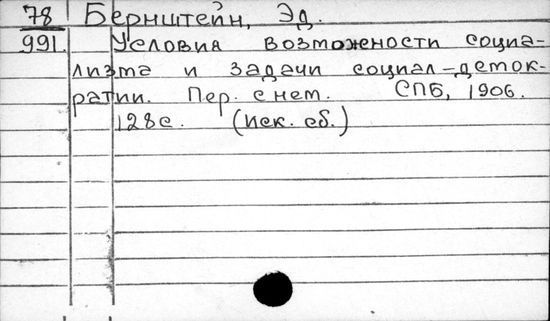 78 Бернштейн, Эд.
991. Условия возможности социа-
лизма и задачи социал-демок-
ратии. Пер. с нем. СПБ, 1906.
128с. (Иск. сб.)